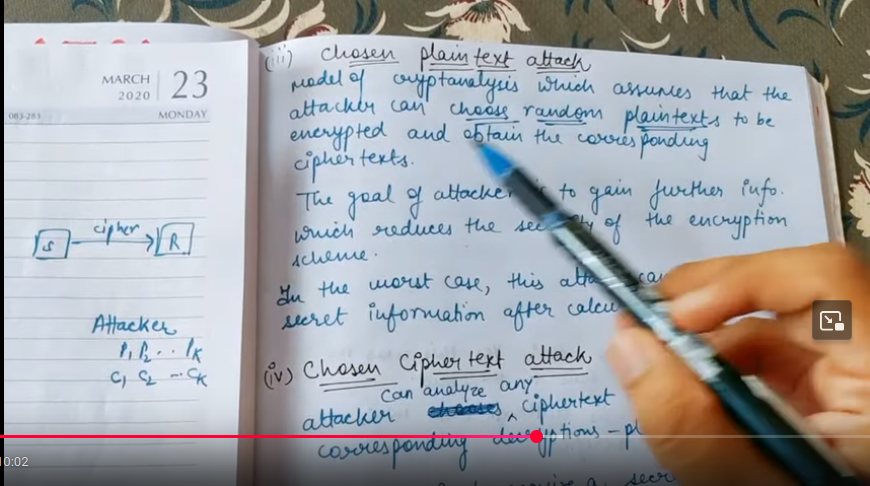 MARCH
2020
23
083-283
MONDAY
S
cipher
R
Attacker
P1 P2 .. PK
C1 C2 --- CK
(iii) Chosen plain text attack
model of cryptanalysis which assumes that the
attacker can choose random plaintexts to be
encrypted and obtain the corresponding
ciphertexts.
The goal of attacker to gain further info.
which reduces the of the encryption
scheme.
In the worst case, this can
secret information after
(iv) Chosen Ciphertext attack
can analyze any
attacker ciphertext
corresponding decryptions -
10:02